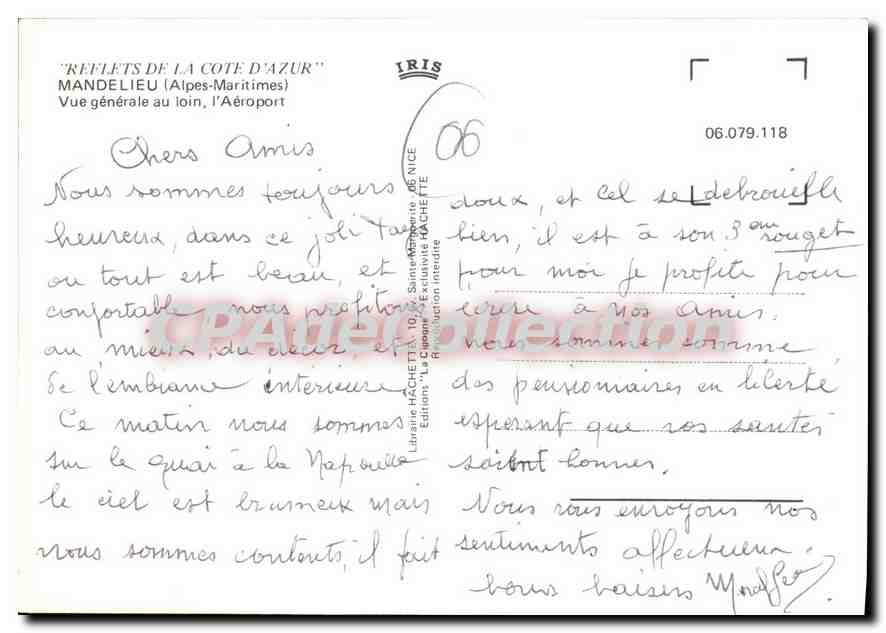 "REFLETS DE LA COTE D'AZUR"
MANDELIEU (Alpes-Maritimes)
Vue générale au loin, l'Aéroport
IRIS
06.079.118
06
Chers Amis
Nous sommes toujours
heureux, dans ce joli
ou tout est beau, et
confortable, nous profitons
au mieux, du décor, et
de l'embiance intérieure
Ce matin nous sommes
sur le quai à la Napoule
le ciel est brumeux mais
nous sommes contents, il fait
doux, et cel se debrouille
bien, il est à son 3 eme rouget
pour moi je profite pour
ecrire à nos Amis.
nous sommes comme
des pensionnaires en liberté
esperant que vos santés
soient bonnes.
Nous vous envoyons nos
sentiments affectueux.
bons baisers
Librairie HACHETTE - 10, Av. Sainte-Marguerite - 06 NICE
Editions "La Cigogne" - Exclusivité HACHETTE
Reproduction interdite
CPAdeCollection